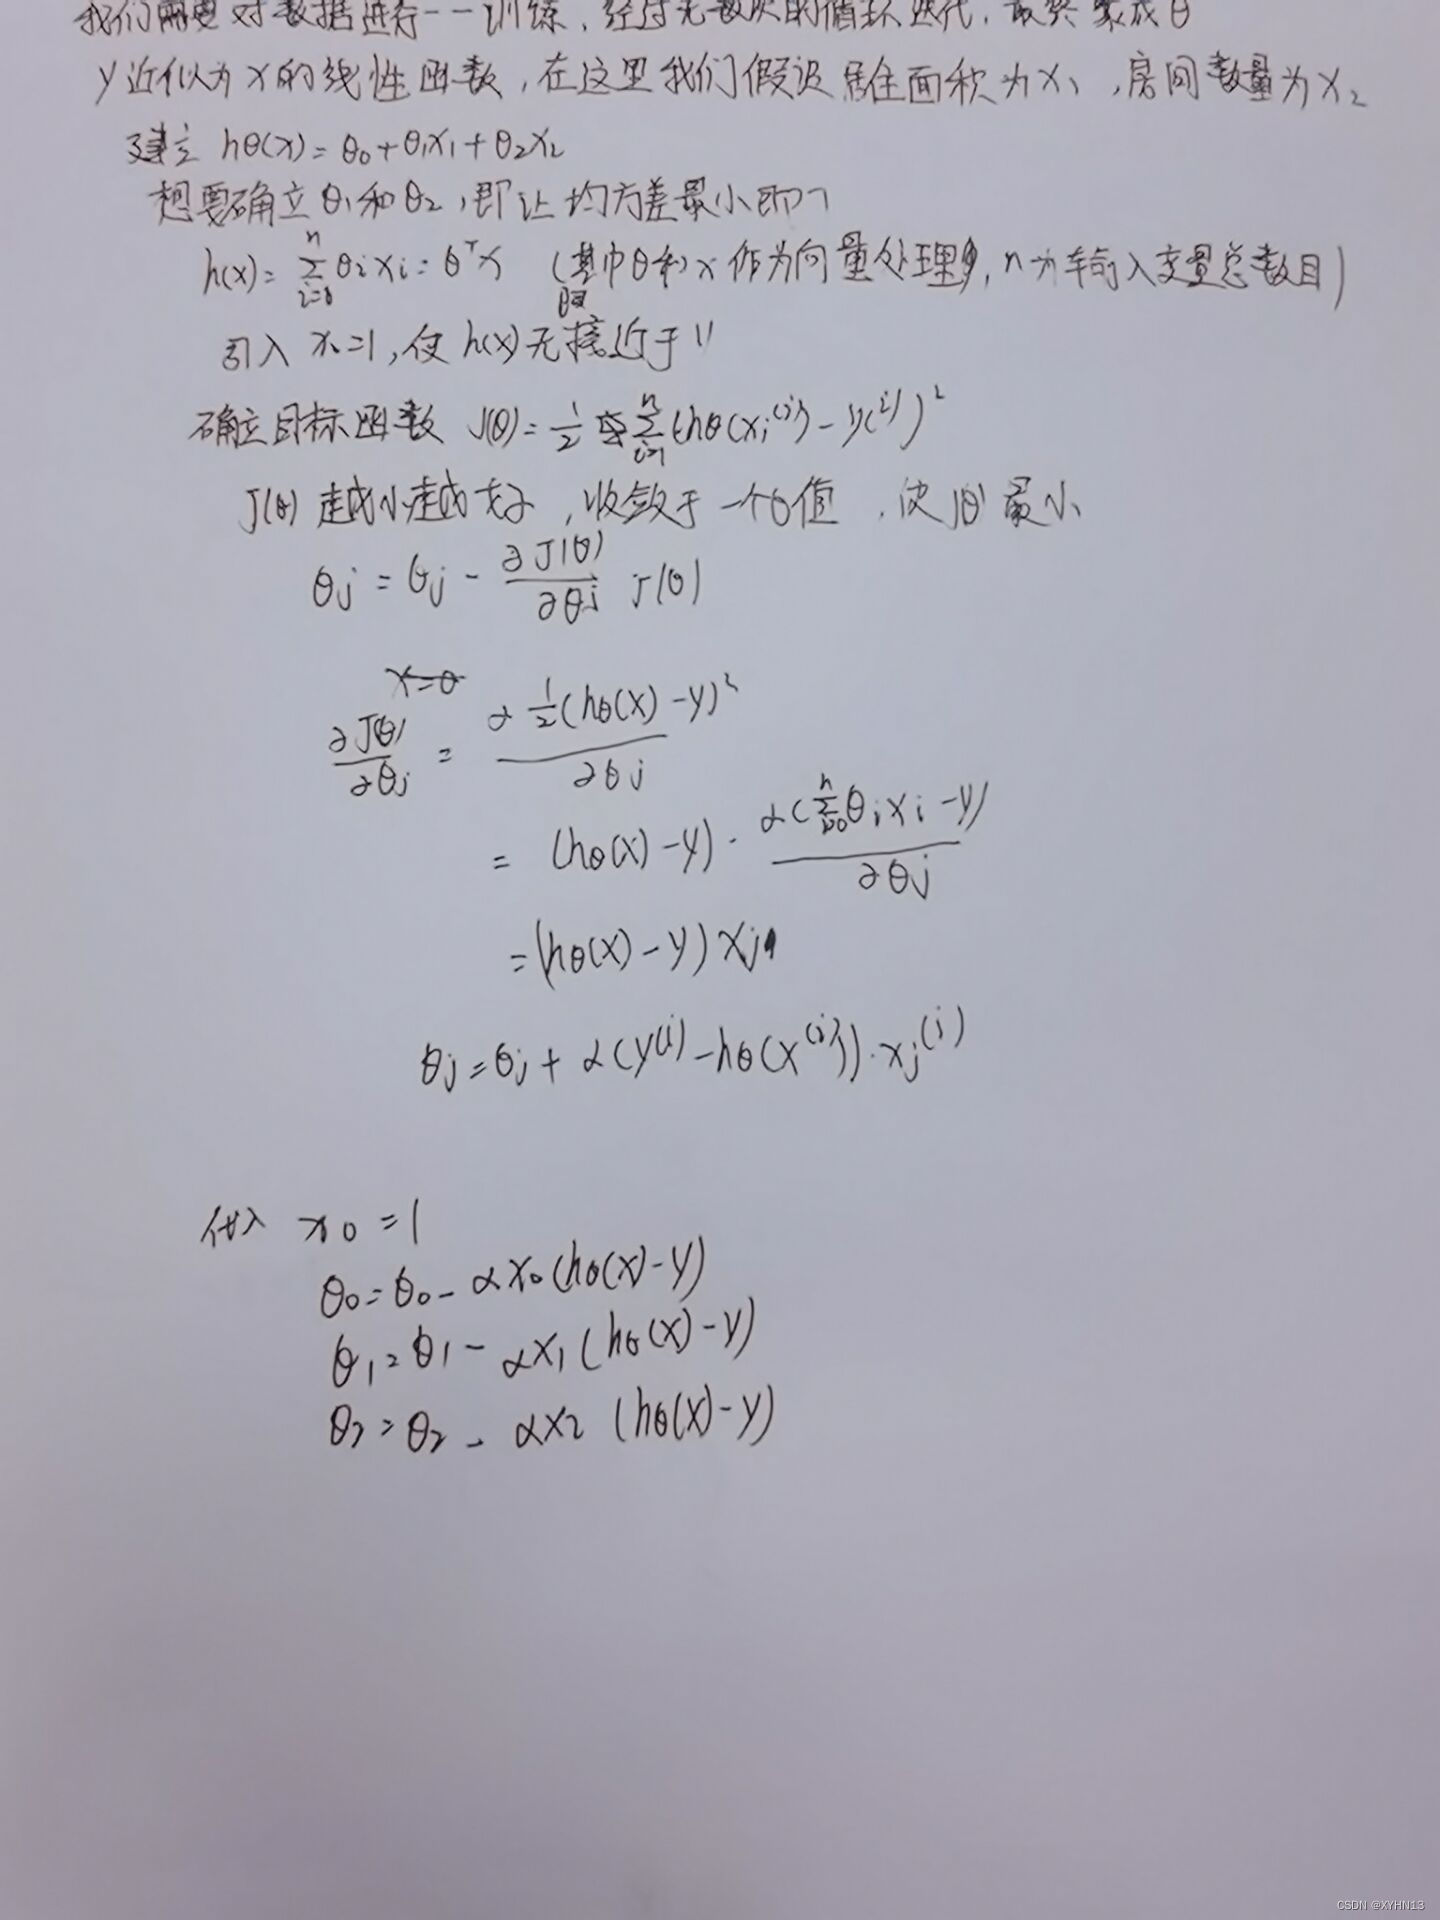 我们需要对数据进行一一训练，经过无数次的循环迭代，最终求成θ
y近似为x的线性函数，在这里我们假设居住面积为x₁，房间数量为x₂
建立 hθ(x)=θ₀+θ₁x₁+θ₂x₂
想要确立θ₁和θ₂，即让均方差最小即可
h(x)=∑ⁿᵢ₌₀θixi=θᵀx (其中θ和x作为向量处理，n为输入变量总数目)
引入x₀=1，使h(x)无限接近于y
确立目标函数 J(θ)=½∑ⁿᵢ₌₁(hθ(xᵢ⁽ⁱ⁾)-y⁽ⁱ⁾)²
J(θ)越小越好，收敛于一个θ值，使J(θ)最小
θj=θj-∂J(θ)/∂θj J(θ)
x=θ
∂J(θ)/∂θj=∂½(hθ(x)-y)²/∂θj
=(hθ(x)-y)·∂(∑ⁿᵢ₌₀θixi-y)/∂θj
=(hθ(x)-y)xj
θj=θj+α(y⁽ⁱ⁾-hθ(x⁽ⁱ⁾))·xj⁽ⁱ⁾
代入 x₀=1
θ₀=θ₀-αx₀(hθ(x)-y)
θ₁=θ₁-αx₁(hθ(x)-y)
θ₂=θ₂-αx₂(hθ(x)-y)
CSDN @XYHN13